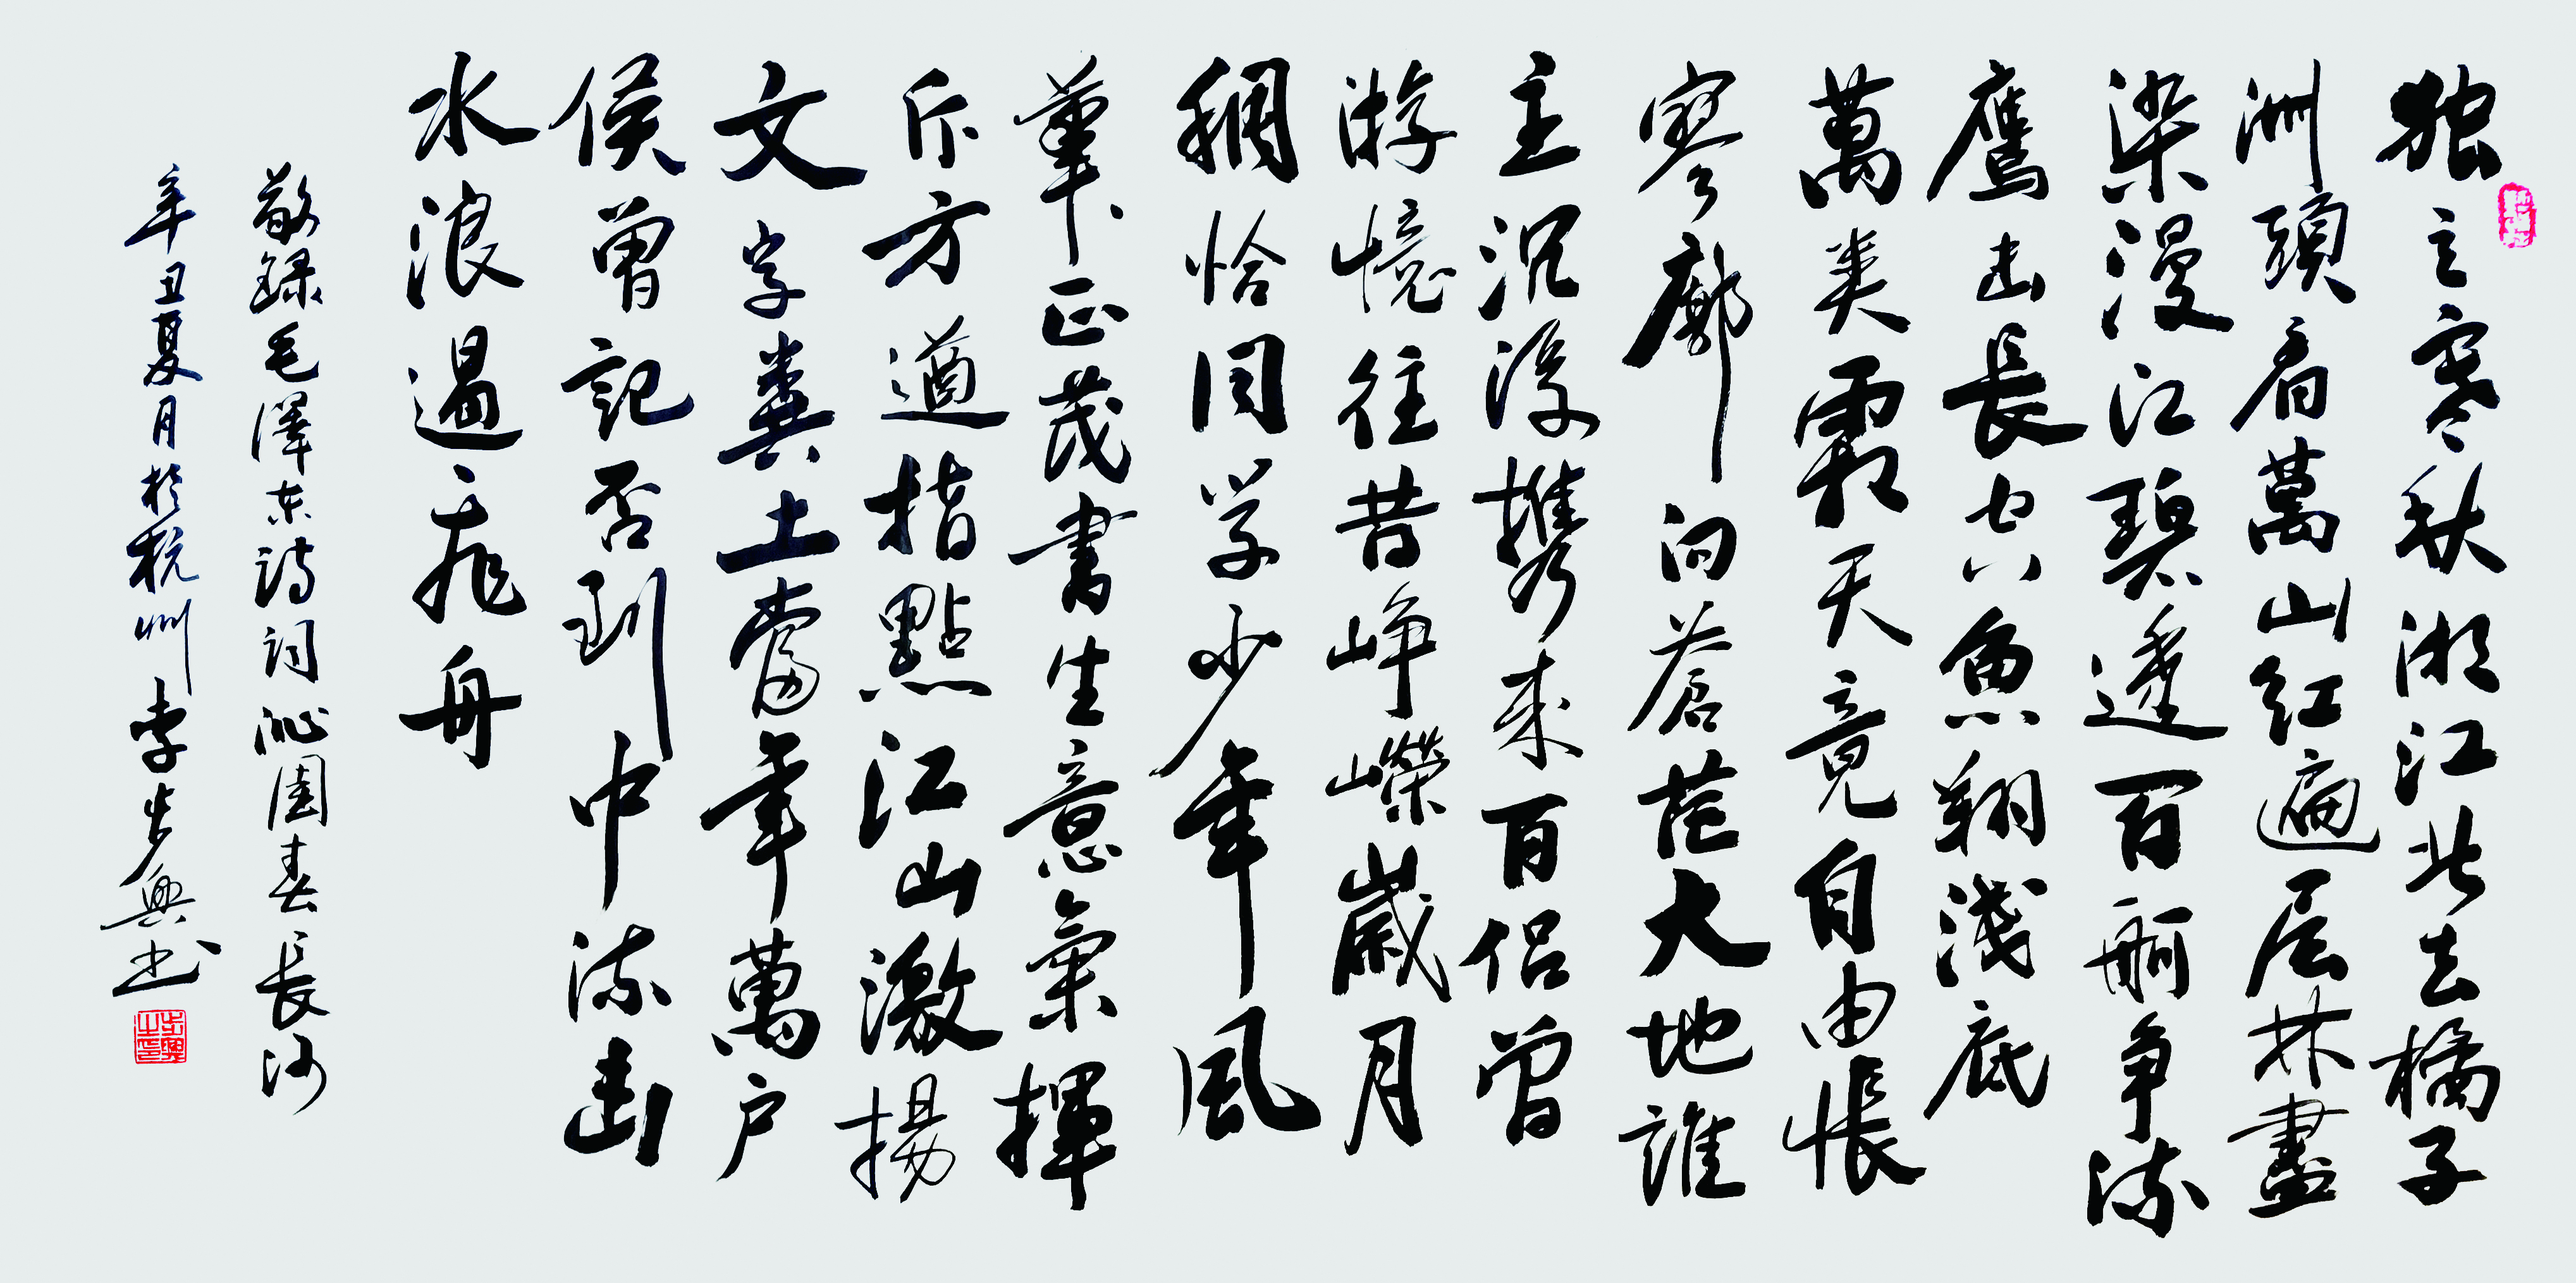 独立寒秋湘江北去橘子
洲頭看萬山红遍层林盡
染漫江碧透百舸争流
鷹击長空魚翔淺底
萬类霜天竟自由悵
寥廓问蒼茫大地誰
主沉浮携来百侣曾
游憶往昔峥嶸嵗月
稠恰同学少年風
華正茂書生意氣揮
斥方遒指點江山激揚
文字粪土當年萬户
侯曾記否到中流击
水浪遏飛舟
敬録毛澤东詩词沁園春長沙
辛丑夏月於杭州李步興书